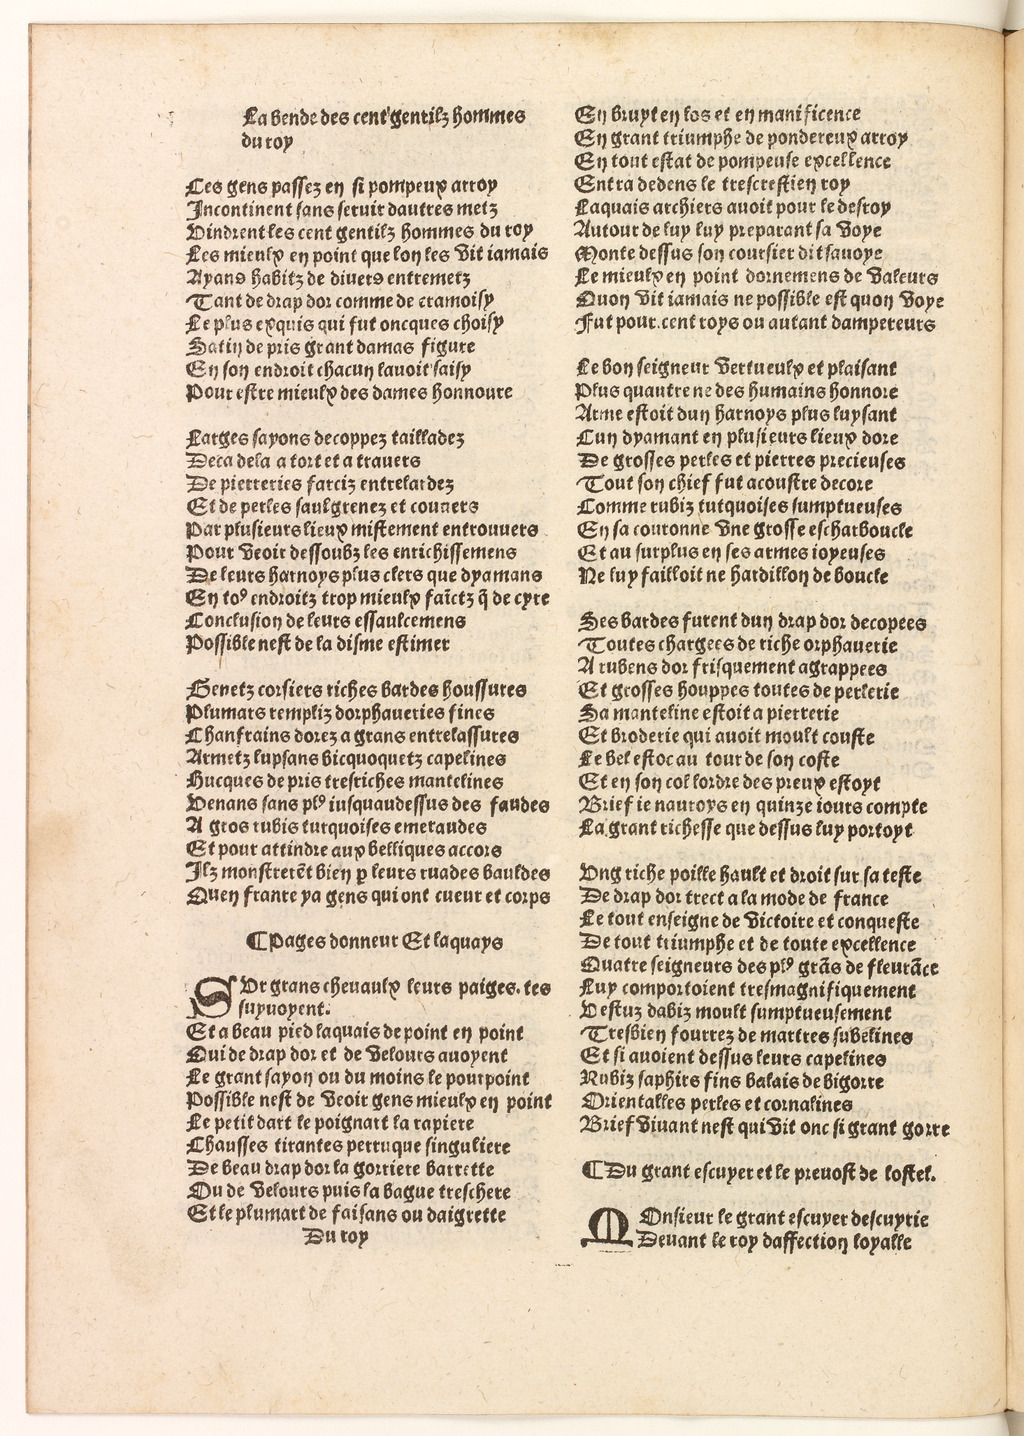 La bende des cent gentilz hommes
du roy
Ces gens passez en si pompeux arroy
Incontinent sans seruir dautres metz
Vindrent les cent gentilz hommes du roy
Les mieulx en point que lon les vit iamais
Ayans habitz de diuers entremetz
Tant de drap dor comme de cramoisy
Le plus exquis qui fut oncques choisy
Satin de pris grant damas figure
En son endroit chacun lauoit saisy
Pour estre mieulx des dames honnoure
Larges sayons decoppez tailladez
Deca dela a tort et a trauers
De pierreries farciz entrelardez
Et de perles saulgrenez et couuers
Par plusieurs lieux mistement entrouuers
Pour veoir dessoubz les enrichissemens
De leurs harnoys plus clers que dyamans
En toꝰ endroitz trop mieulx faictz q̃ de cyre
Conclusion de leurs essaulcemens
Possible nest de la disme estimer
Genetz corsiers riches bardes houssures
Plumars rempliz dorphaueries fines
Chanfrains dorez a grans entrelassures
Armetz luysans bicquoquetz capelines
Hucques de pris tresriches mantelines
Venans sans plꝰ iusquaudessus des faudes
A gros rubis turquoises emeraudes
Et pour attindre aux belliques accors
Ilz monstrerẽt bien ꝑ leurs ruades bauldes
Quen france ya gens qui ont cueur et corps
¶Pages donneur Et laquays
SVr grans cheuaulx leurs paiges. les
suyuoyent.
Et a beau pied laquais de point en point
Qui de drap dor et de velours auoyent
Le grant sayon ou du moins le pourpoint
Possible nest de veoir gens mieulx en point
Le petit dart le poignart la rapiere
Chausses tirantes perruque singuliere
De beau drap dor la gorriere barrette
Ou de velours puis la bague treschere
Et le plumart de faisans ou daigrette
Du roy
En bruyt en los et en manificence
En grant triumphe de pondereux arroy
En tout estat de pompeuse excellence
Entra dedens le trescrestien roy
Laquais archiers auoit pour le desroy
Autour de luy luy preparant sa voye
Monte dessus son coursier dit sauoye
Le mieulx en point dornemens de valeurs
Quon vit iamais ne possible est quon voye
Fut pour.cent roys ou autant dampereurs
Le bon seigneur vertueulx et plaisant
Plus quautre ne des humains honnore
Arme estoit dun harnoys plus luysant
Cun dyamant en plusieurs lieux dore
De grosses perles et pierres precieuses
Tout son chief fut acoustre decore
Comme rubiz turquoises sumptueuses
En sa couronne vne grosse escharboucle
Et au surplus en ses armes ioyeuses
Ne luy failloit ne hardillon de boucle
Ses bardes furent dun drap dor decopees
Toutes chargees de riche orphauerie
A rubens dor frisquement agrappees
Et grosses houppes toutes de perlerie
Sa manteline estoit a pierrerie
Et broderie qui auoit moult couste
Le bel estoc au tour de son coste
Et en son col lordre des preux estoyt
Brief ie nauroys en quinze iours compte
La grant richesse que dessus luy portoyt
Vng riche poille hault et droit sur sa teste
De drap dor trect a la mode de france
Le tout enseigne de victoire et conqueste
De tout triumphe et de toute excellence
Quatre seigneurs des plꝰ grãs de fleurãce
Luy comportoient tresmagnifiquement
Vestuz dabiz moult sumptueusement
Tresbien fourrez de martres subelines
Et si auoient dessus leurs capelines
Rubiz saphirs fins balais de bigorre
Orientalles perles et cornalines
Brief viuant nest qui vit onc si grant gorre
¶Du grant escuyer et le preuost de lostel.
MOnsieur le grant escuyer descuyrie
Deuant le roy daffection loyalle